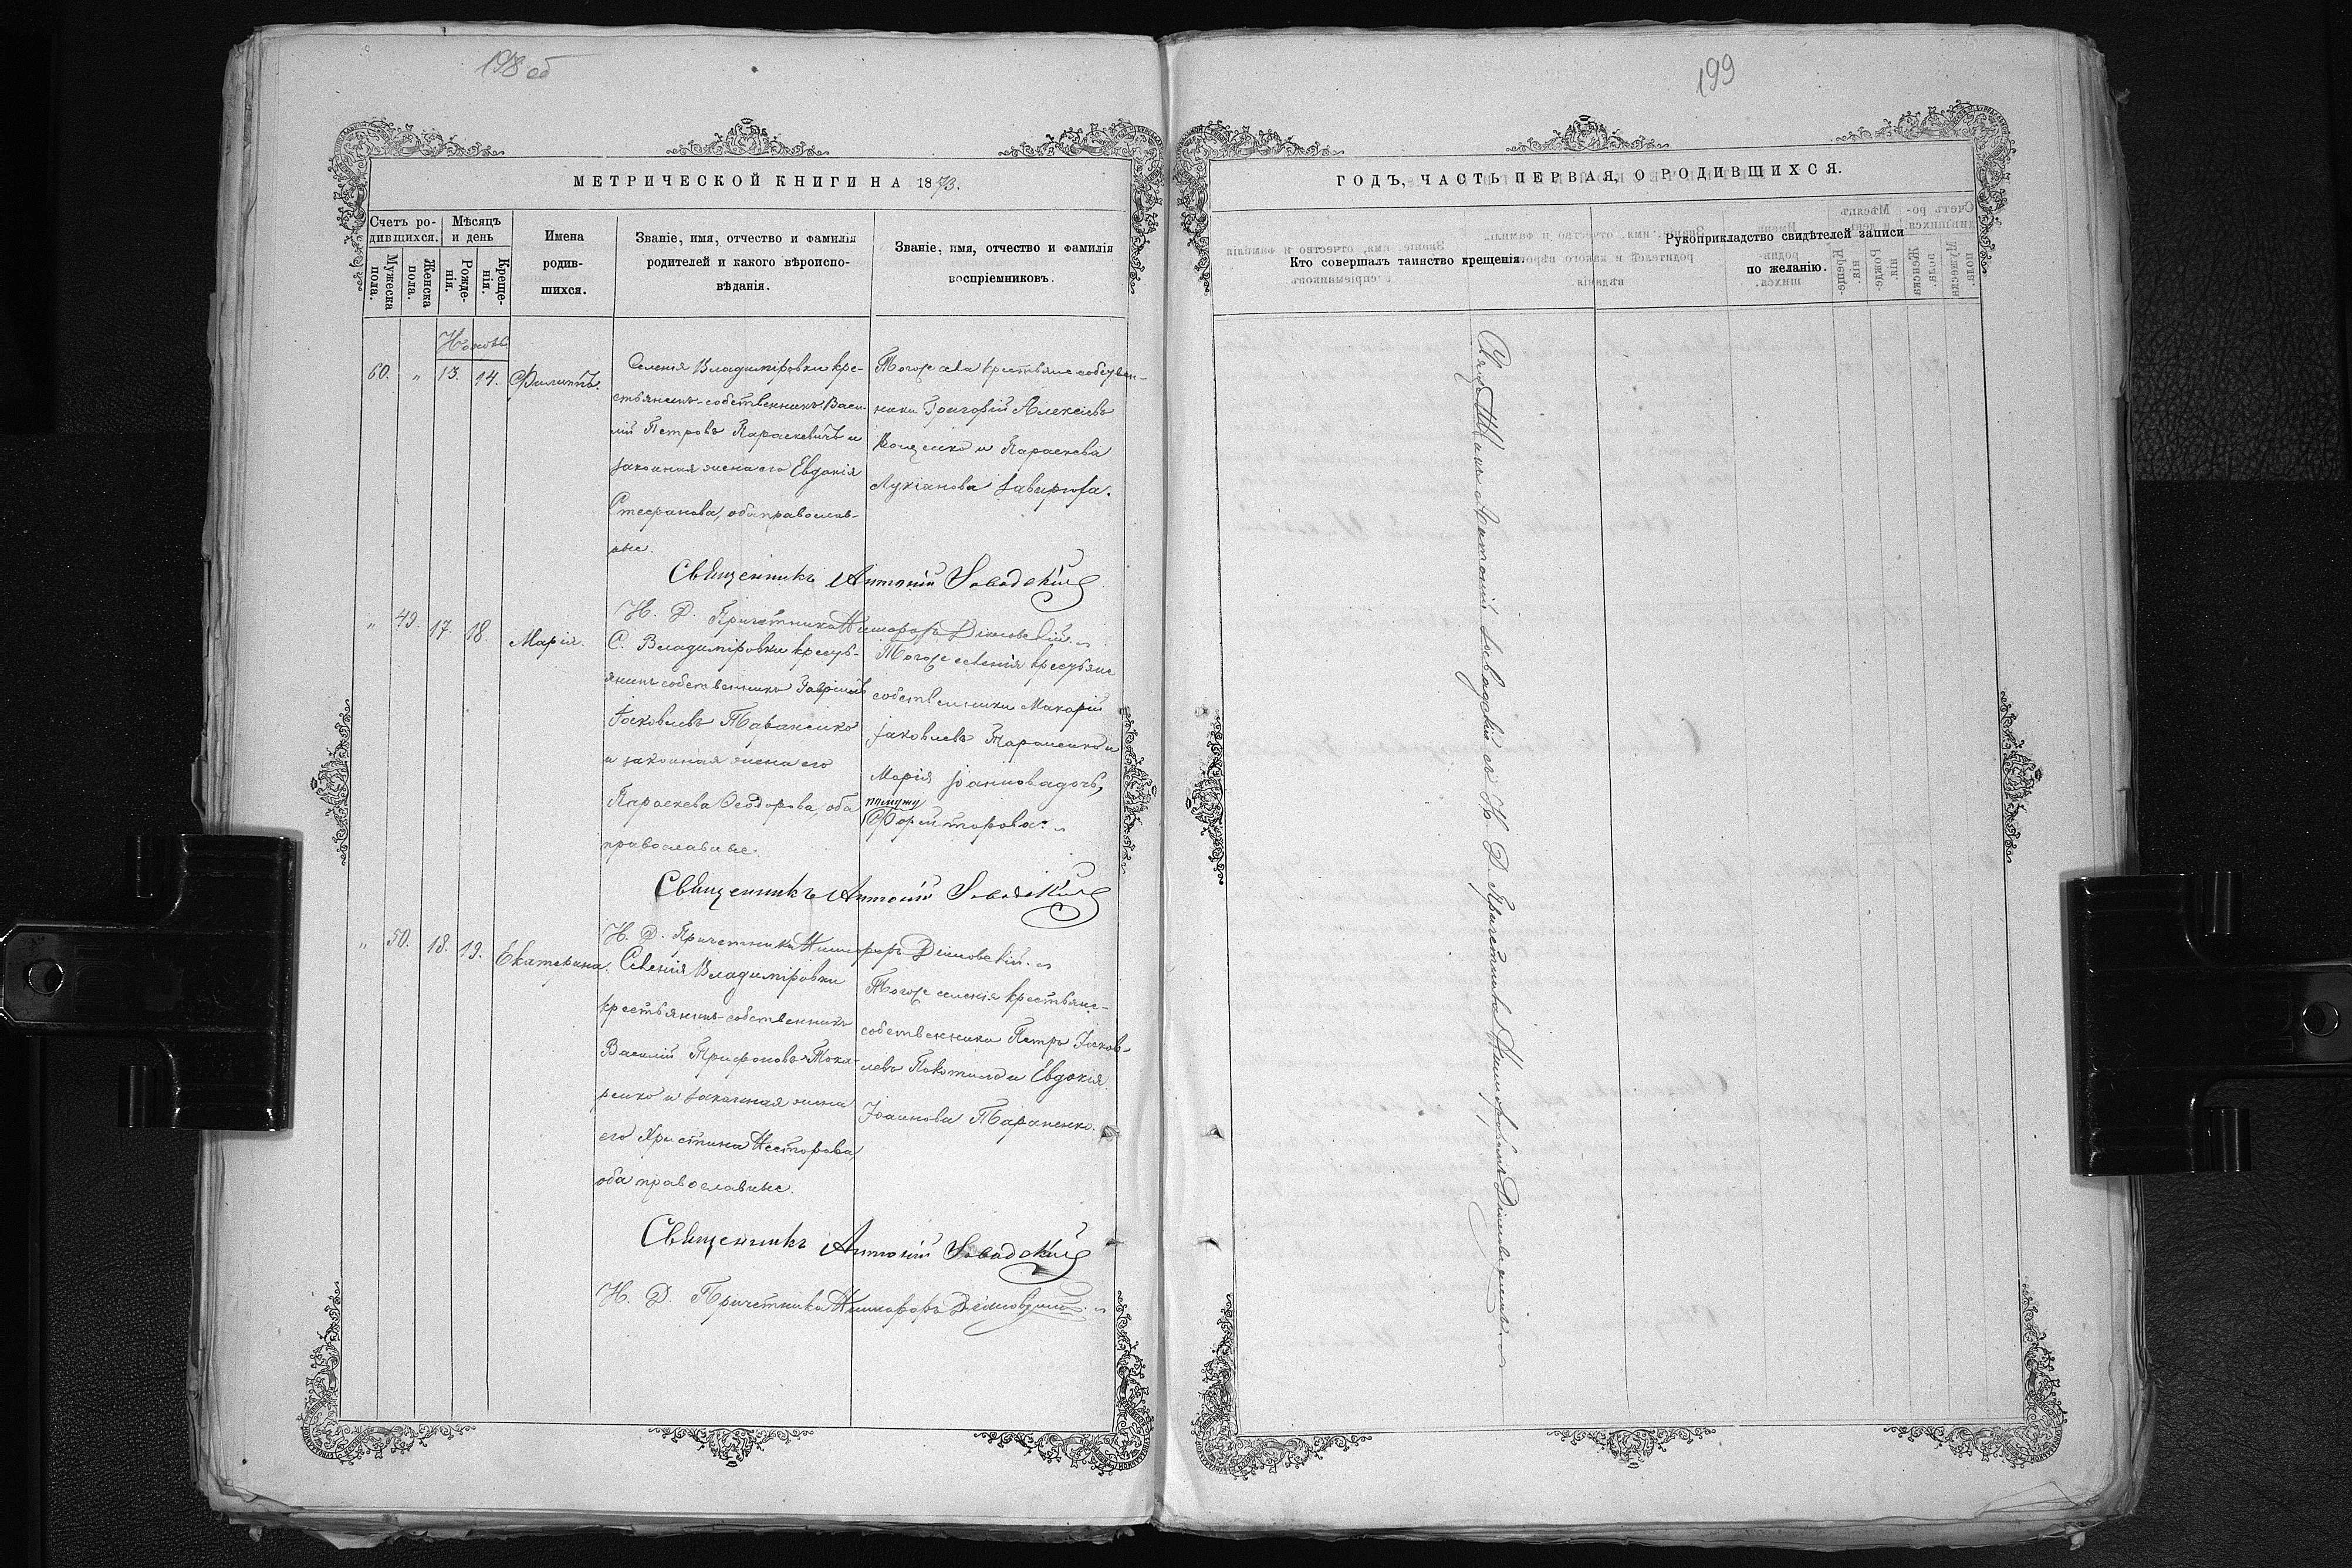 198 об
МЕТРИЧЕСКОЙ КНИГИ НА 1873.
Счетъ родившихся.
Мужеска пола.
Женска пола.
Мѣсяцъ и день
Рожденія.
Крещенія.
Имена родившихся.
Званіе, имя, отчество и фамилія
родителей и какого вѣроиспо-
вѣданія.
Званіе, имя, отчество и фамилія
воспріемниковъ.
Ноябрь
60. „ 13. 14. Филиппъ.
Селенія Владиміровки кре-
стьянинъ-собственникъ Васи-
лій Петровъ Параскевичъ и
законная жена его Евдокія
Стефанова, оба православ-
ные.
Тогоже села крестьяне собствен-
ники Григорій Алексіевъ
и Параскева
Лукіанова
Священникъ Антоній Завадскій
И. Д. Причетника Никифоръ
„ 49. 17. 18. Марія.
С. Владиміровки кресть-
янинъ собственникъ Гавріилъ
Іаковлевъ Тараненко
и законная жена его
Параскева Ѳеодорова, оба
православные.
Тогоже селенія крестьяне
собственники Макарій
Іаковлевъ Тараненко и
Марія Іоаннова дочь,
помужу
Священникъ Антоній Завадскій
И. Д. Причетника Никифоръ
„ 50. 18. 19. Екатерина.
Селенія Владиміровки
крестьянинъ-собственникъ
Василій Трифоновъ Тока-
ренко и законная жена
его Христина Несторова,
оба православные.
Тогоже селенія крестьяне-
собственники Петръ Іаков-
левъ Покотило и Евдокія
Іоаннова Тараненко.
Священникъ Антоній Завадскій
И. Д. Причетника Никифоръ
199
ГОДЪ, ЧАСТЬ ПЕРВАЯ, О РОДИВШИХСЯ.
Кто совершалъ таинство крещенія.
Рукоприкладство свидѣтелей записи
по желанію.
Священникъ Антоній Завадскій съ И. Д. Причетника Никифоромъ